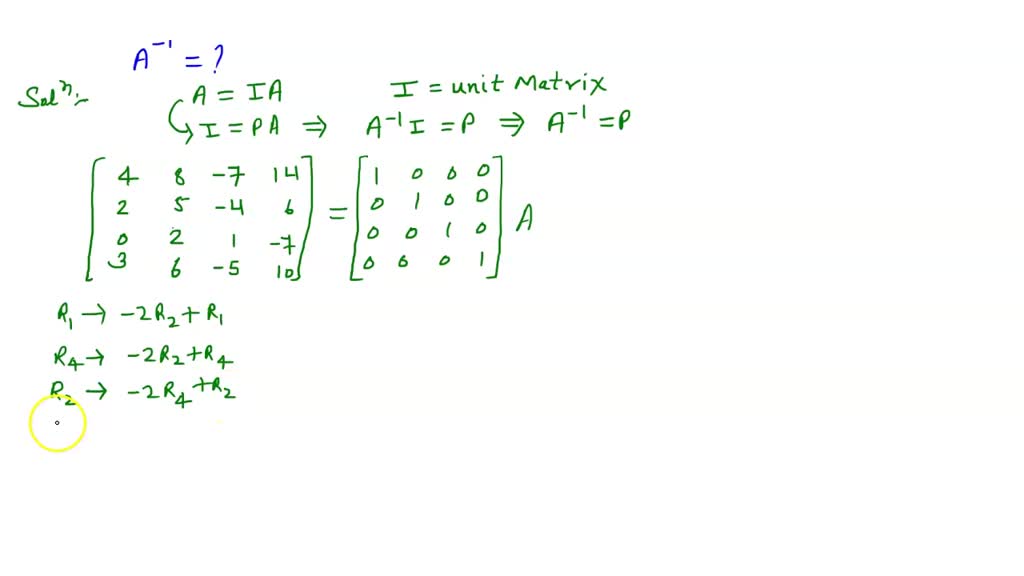 A⁻¹ = ?
Solⁿ:-
A = IA
I = unit Matrix
I = PA ⇒ A⁻¹ I = P ⇒ A⁻¹ = P
[4 8 -7 14] = [1 0 0 0] A
[2 5 -4 6] [0 1 0 0]
[0 2 1 -7] [0 0 1 0]
[3 6 -5 10] [0 0 0 1]
R₁ → -2R₂ + R₁
R₄ → -2R₂ + R₄
R₂ → -2R₄ + R₂